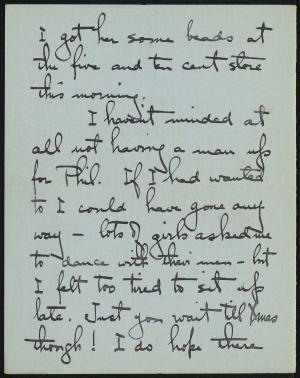 I got her some beads at
the five and ten cent store
this morning.
I haven't minded at
all not having a man up
for Phil. If I had wanted
to I could have gone any
way – lots of girls asked me
to dance with their men – but
I felt too tired to sit up
late. Just you wait till Xmas
though! I do hope there